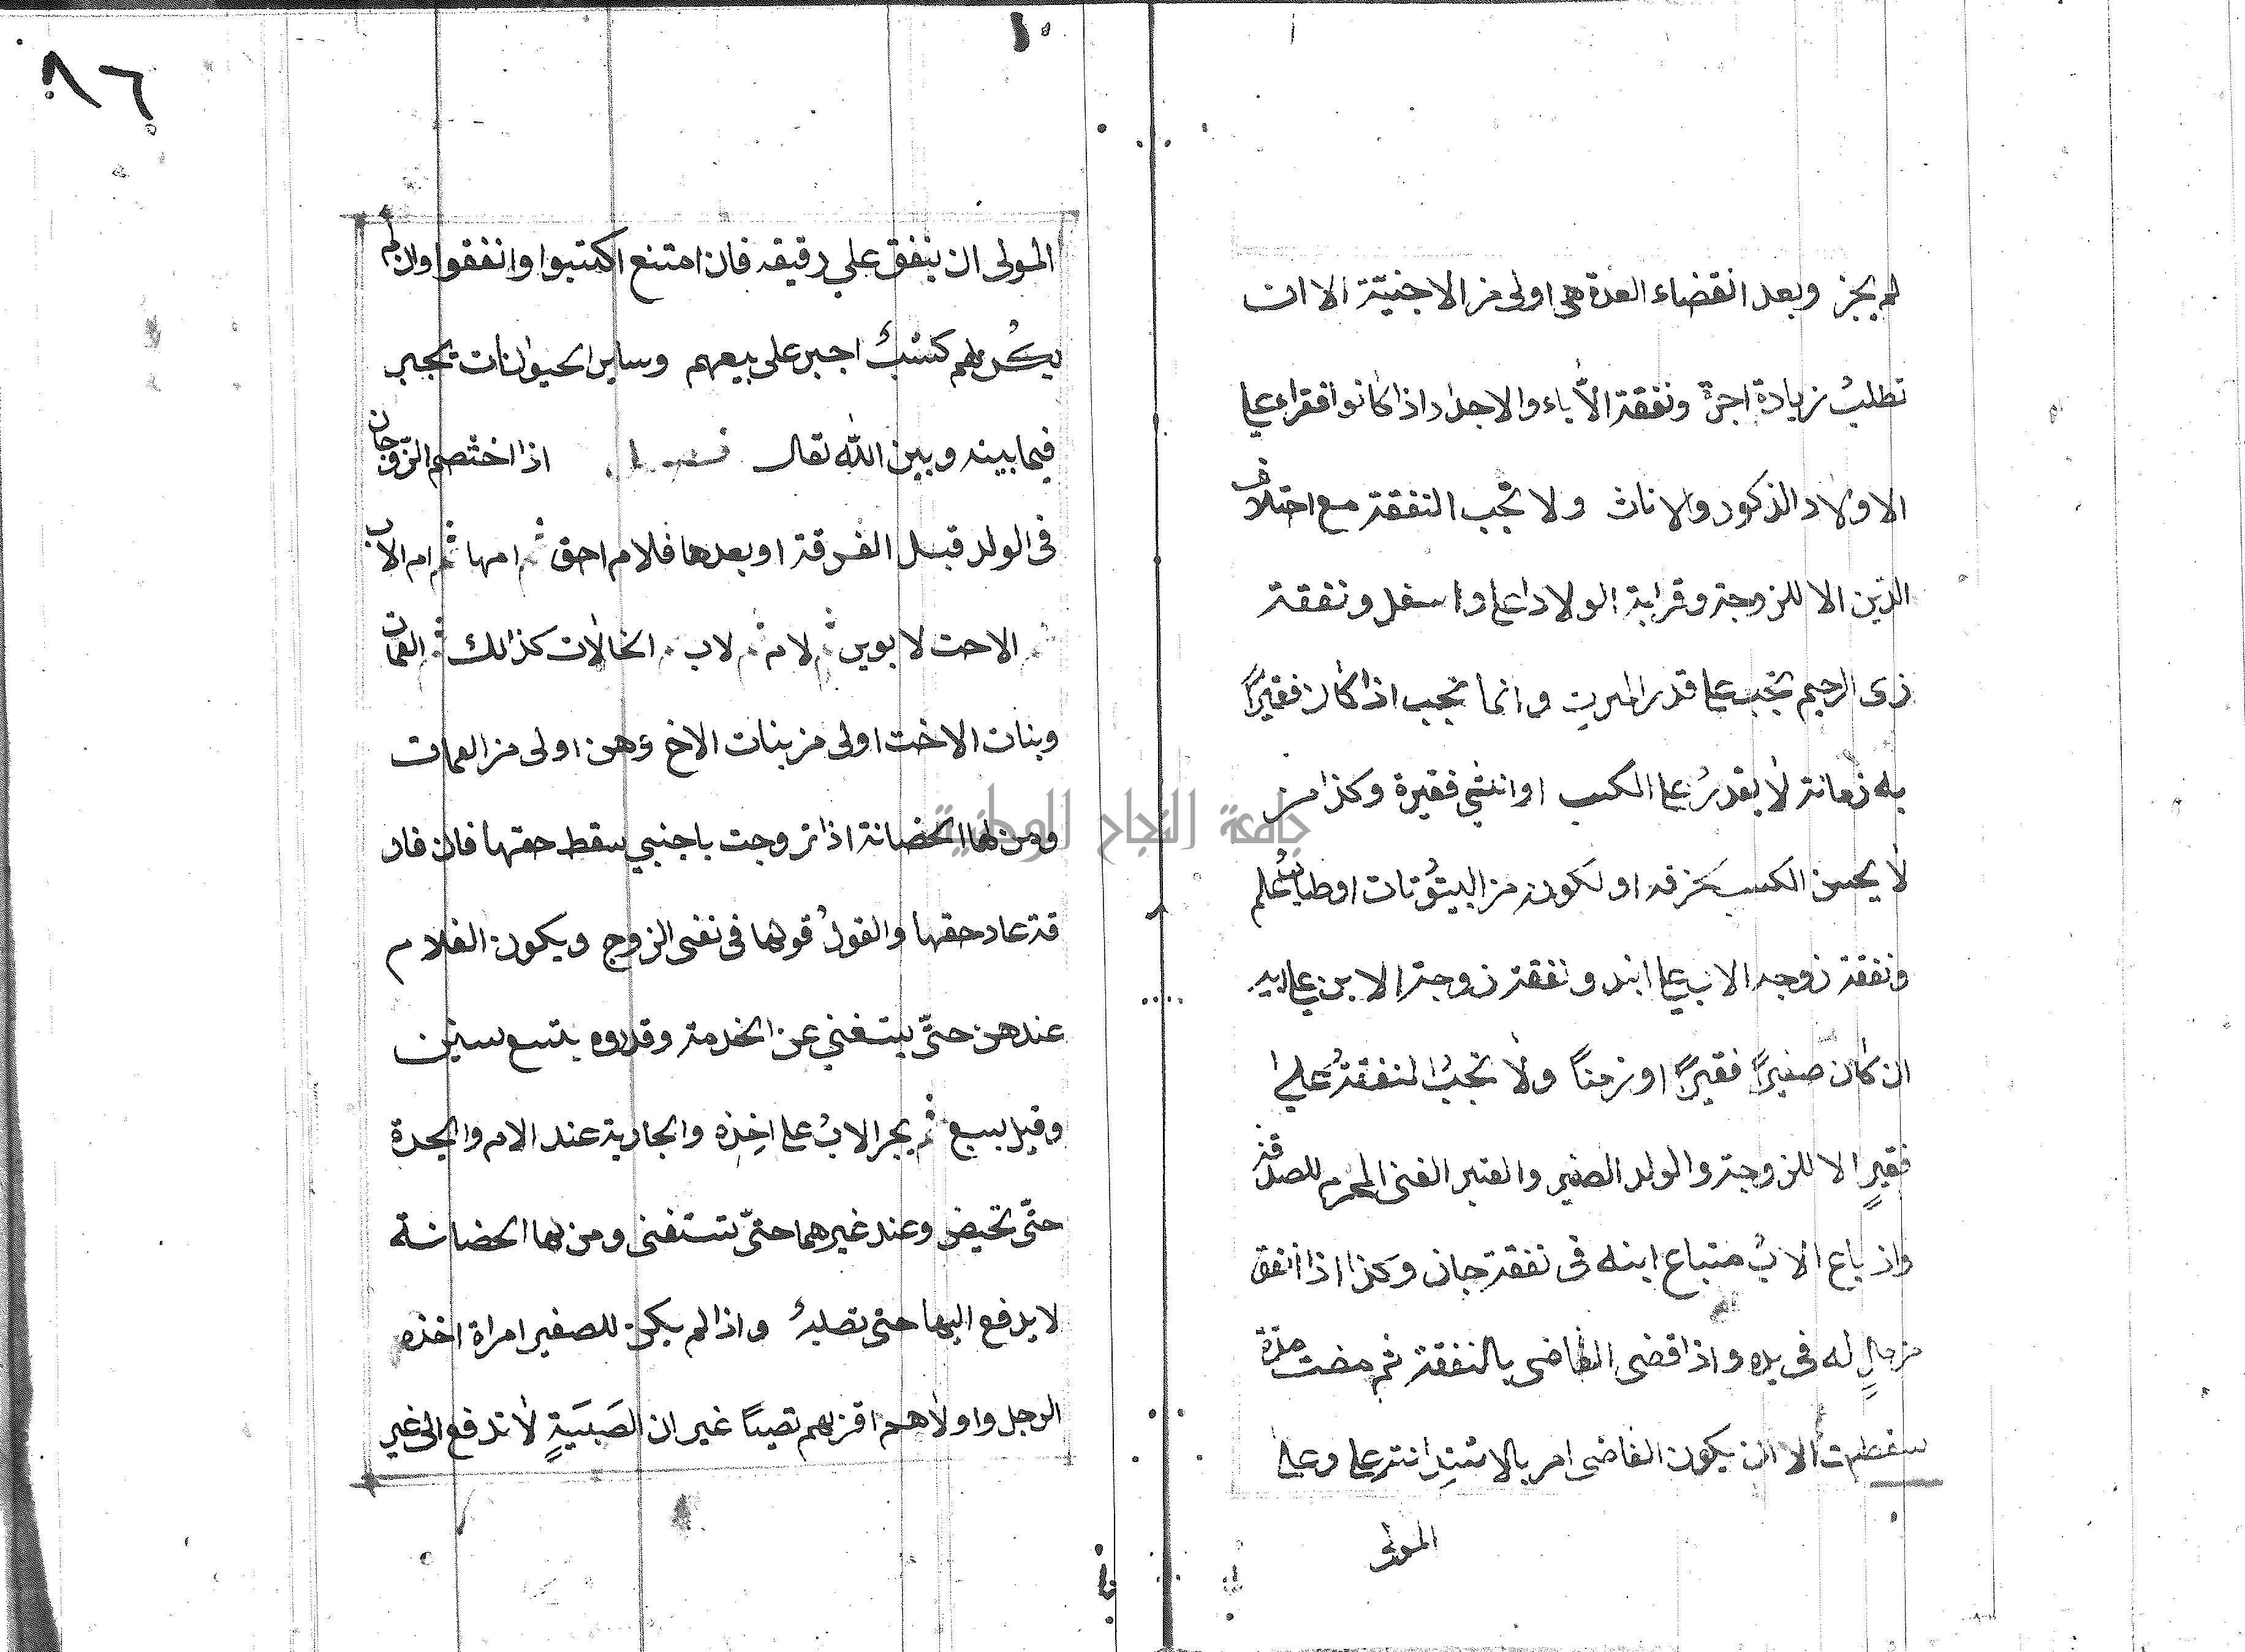 لم يجز وبعد انقضاء العدة هى اولى من الاجنبيّة الا ان
تطلبُ زيادة اجرة ونفقة الأباء والاجداد اذا كانوا فقراء على
الاولاد الذكور والاناث ولا تجب النفقة مع اختلاف
الدّين الا للزوجة وقرابة الولاد اعلا واسفل ونفقة
ذى الرحم تجب على قدر الميرث وانما تجب اذا كان فقيرًا
به زمانة لا يقدرُ على الكسب او انثى فقيرة وكذا من
لا يحسن الكسب لخرقه او لكونه من البيتوتات او طالبُ علم
ونفقة زوجه الاب على ابنه ونفقة زوجة الابن على ابيه
ان كان صغيرًا فقيرًا او زمنًا ولا تجبُ النفقةُ على
فقيرٍ الا للزوجة والولد الصغير والمعتبر الغنى المحرم للصدقة
واذ باع الابُ متاع ابنه فى نفقة جاز وكذا اذا انفق
من مالٍ له فى يده واذا قضى القاضى بالنفقة ثم مضت مدّة
سقطت الا ان يكون القاضى امر بالاستدانة على وعلى
المولى
١٠
٩٦
المولى ان ينفق على رقيقه فان امتنع اكتسبوا وانفقوا وان لم
يكن لهم كسْبٌ اجبر على بيعهم وساير الحيوانات يجبر
فيما بينه وبين الله تعال فصل اذا اختصم الزّوجان
فى الولد قبل الفرقة او بعدها فلام احق ثم امها ثم ام الاب
ثم الاخت لابوين ثم لام ثم لاب ثم الخالات كذالك ثم العمات
وبنات الاخت اولى من بنات الاخ وهن اولى من العمات
ومن لها الحضانة اذا تزوجت باجنبي سقط حقها فان فار
قة عاد حقها والقولُ قولها فى نفى الزوج ويكون الغلام
عندهن حتّى يستغني عن الخدمة وقدروه بتسع سنين
وقيل بسبع ثم يجبر الابُ على اخِذه والجارية عند الام والجدة
حتّى تحيض وعند غيرهما حتّى تستغنى ومن لها الحضانة
لا يدفع اليها حتى تصلبهُ واذا لم يكن للصغير امراة اخذه
الرجل واولاهم اقربهم تعصيبًا غير ان الصَبيَةٍ لا تدفع الى غير
جامعة النجاح الوطنية